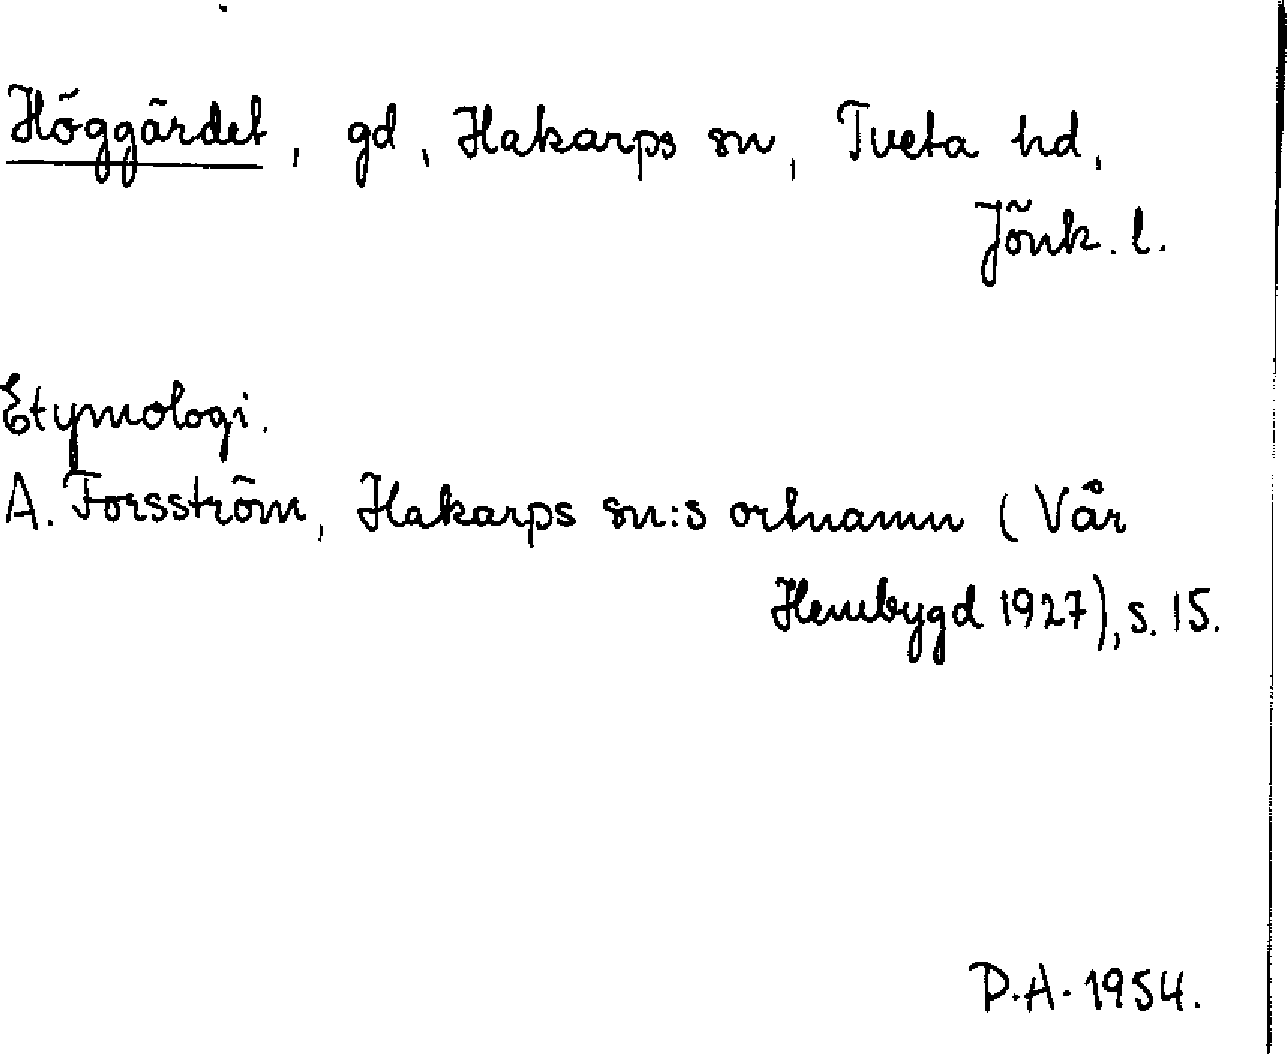 Höggärdet, gd, Hakarps sn, Tveta hd,
Jönk. l.
Etymologi.
A. Forsström, Hakarps sn:s ortnamn (Vår
Hembygd 1927), s. 15.
D.A. 1954.